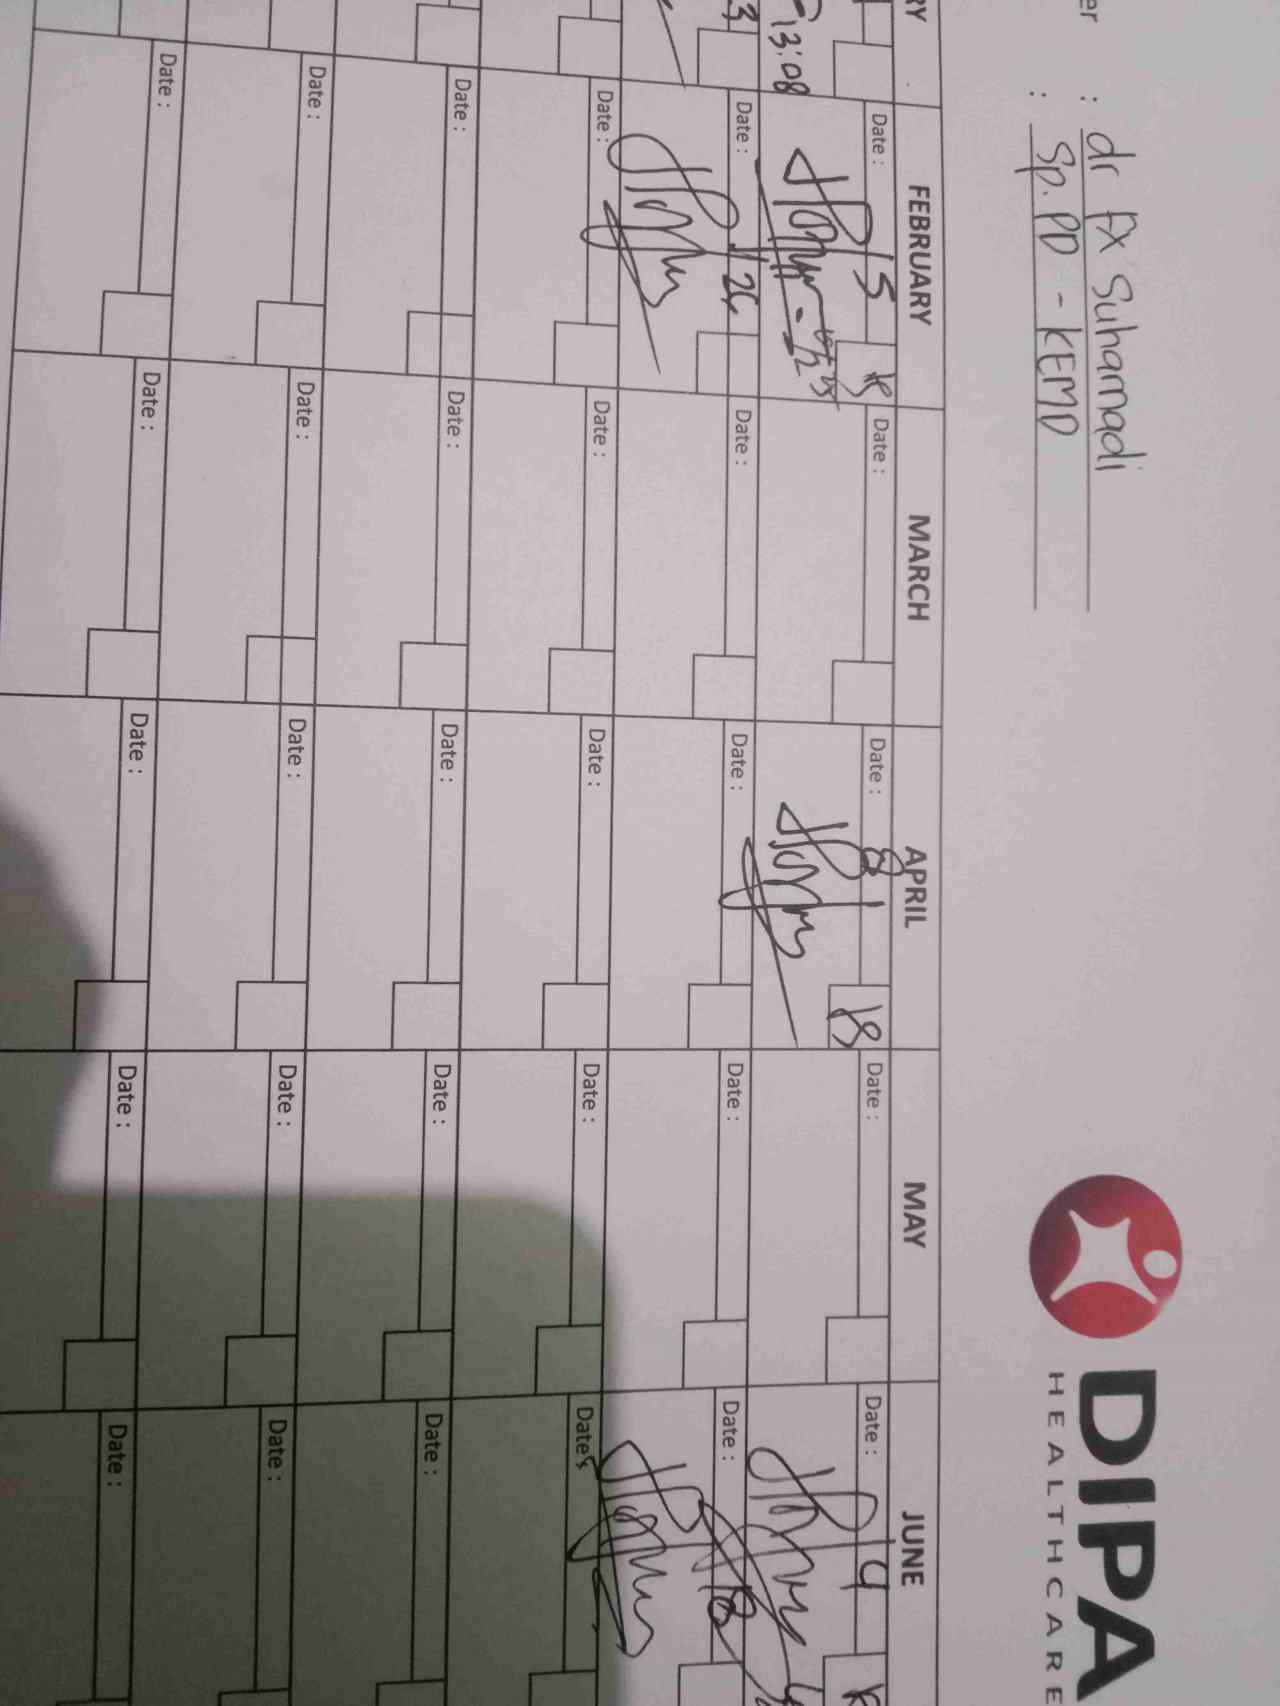 er : dr FX Suhamadi
: Sp. PD - KEMD
DIPA
HEALTHCARE
RY FEBRUARY MARCH APRIL MAY JUNE
Date : 15 Date : Date : 8 Date : Date : 4
13:08
3 Date : 26 Date : Date : Date : Date : 18
Date : Date : Date : Date : Date :
Date : Date : Date : Date : Date :
Date : Date : Date : Date : Date :
Date : Date : Date : Date : Date :